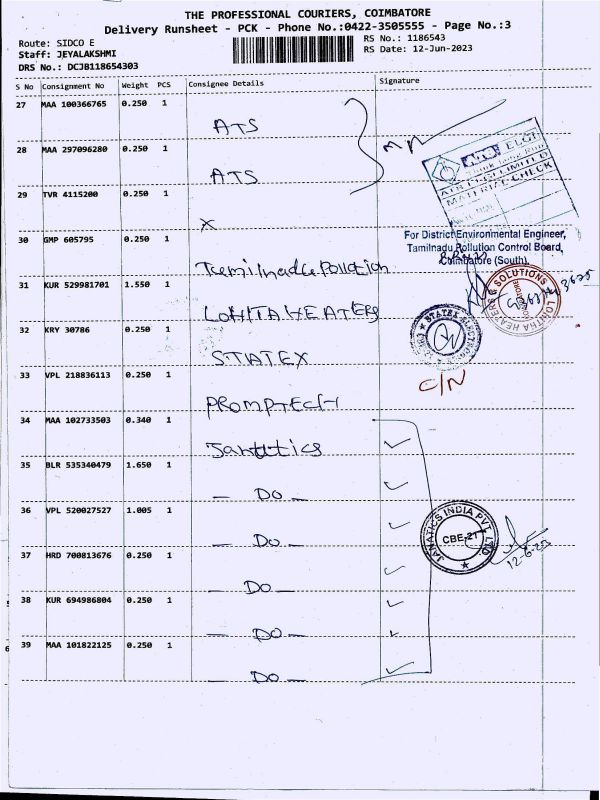 THE PROFESSIONAL COURIERS, COIMBATORE
Delivery Runsheet - PCK - Phone No.:0422-3505555 - Page No.:3
Route: SIDCO E
Staff: JEYALAKSHMI
DRS No.: DCJB118654303
RS No.: 1186543
RS Date: 12-Jun-2023
S No Consignment No Weight PCS Consignee Details Signature
27 MAA 100366765 0.250 1
ATS
28 MAA 297096280 1
ATS
29 TVR 4115200 0.250 1
X
30 GMP 605795 0.250 1
Tamilnadu Pollution
31 KUR 529981701 1.550 1
LOHITA HEATERS
32 KRY 30786 0.250 1
STATEX
33 VPL 218836113 0.250 1
PROMPTECH
34 MAA 102733503 0.340 1
Janatics
35 BLR 535340479 1.650 1
- DO -
36 VPL 520027527 1.005 1
- DO -
37 HRD 700813676 0.250 1
- DO -
38 KUR 694986804 0.250 1
- DO -
39 MAA 101822125 0.250 1
- DO -
ELGI
ATS ELGI LIMITED
MATERIAL CHECK
For District Environmental Engineer,
Tamilnadu Pollution Control Board,
Coimbatore (South).
HEATERS & SOLUTIONS
STATEX
C/N
JANATICS INDIA PVT. LTD.
CBE-21
12-6-23